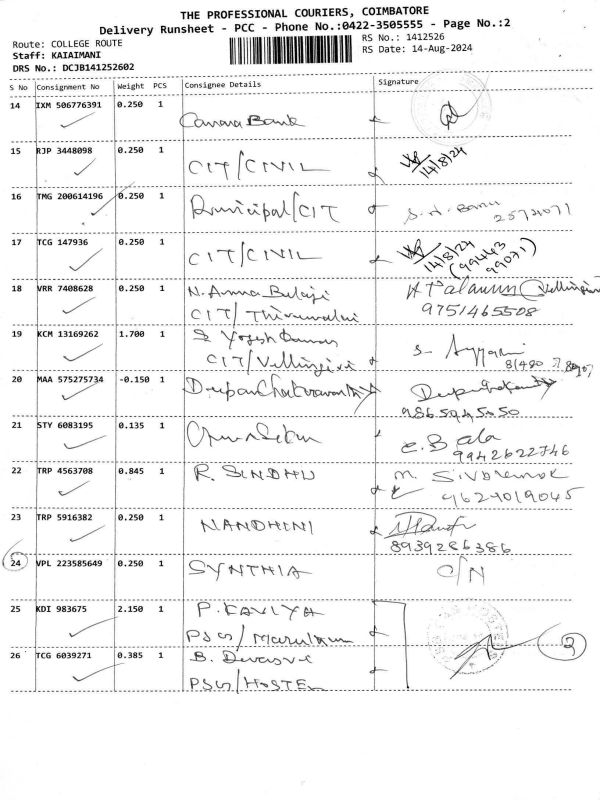 THE PROFESSIONAL COURIERS, COIMBATORE
Delivery Runsheet - PCC - Phone No.:0422-3505555 - Page No.:2
Route: COLLEGE ROUTE
RS No.: 1412526
Staff: KAIAIMANI
RS Date: 14-Aug-2024
DRS No.: DCJB141252602
S No Consignment No Weight PCS Consignee Details Signature
14 IXM 506776391 0.250 1
Canara Bank
15 RJP 3448098 0.250 1
CIT/CIVIL
14/8/24
16 TMG 200614196 0.250 1
CIT
S. N. Banu
2574071
17 TCG 147936 0.250 1
CIT/CIVIL
14/8/24
(99443
99071)
18 VRR 7408628 0.250 1
N. Anna Balaji
CIT/
9751465508
19 KCM 13169262 1.700 1
CIT/Vellingiri
20 MAA 575275734 -0.150 1
Deepan Chakravarthy
9865945050
21 STY 6083195 0.135 1
e. Bala
9942622746
22 TRP 4563708 0.845 1
R. SINDHU
9629019045
23 TRP 5916382 0.250 1
NANDHINI
8939286386
24 VPL 223585649 0.250 1
SYNTHIA
C/N
25 KDI 983675 2.150 1
P. KAVIYA
PSG/
3
26 TCG 6039271 0.385 1
B.
PSG/HOSTEL